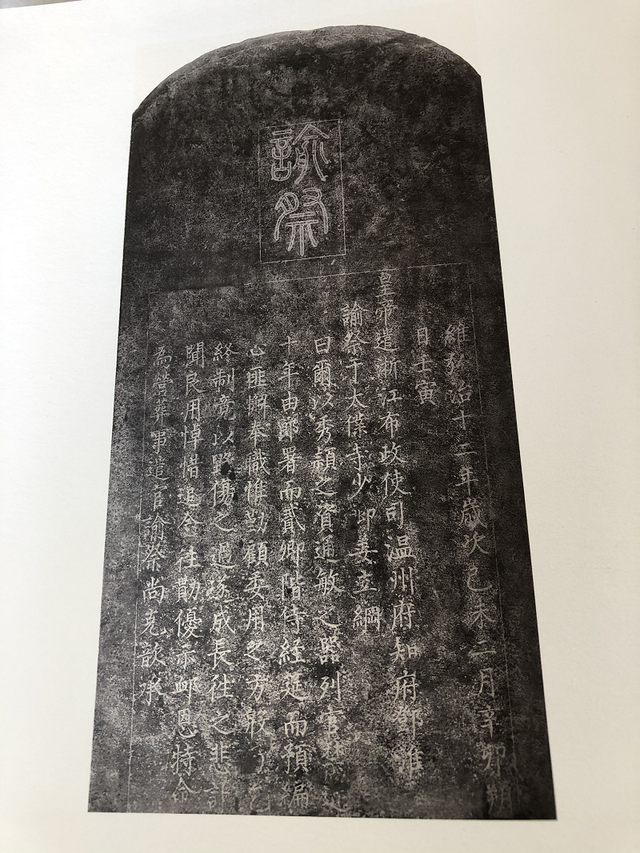 諭祭
維弘治十二年歲次己未二月辛卯朔
日壬寅
皇帝遣浙江布政使司温州府知府鄧淮
諭祭于太僕寺少卿姜立綱
曰爾以秀穎之資通敏之器列官
十年由郎署而貳卿階侍經筵而預編
心匪懈奉職惟勤顧委用之方殷乞
終制竟以毀傷之過遂成長往之悲訃
聞良用悼惜追念往勩優示卹恩特命
為營葬事遣官諭祭尚克歆承